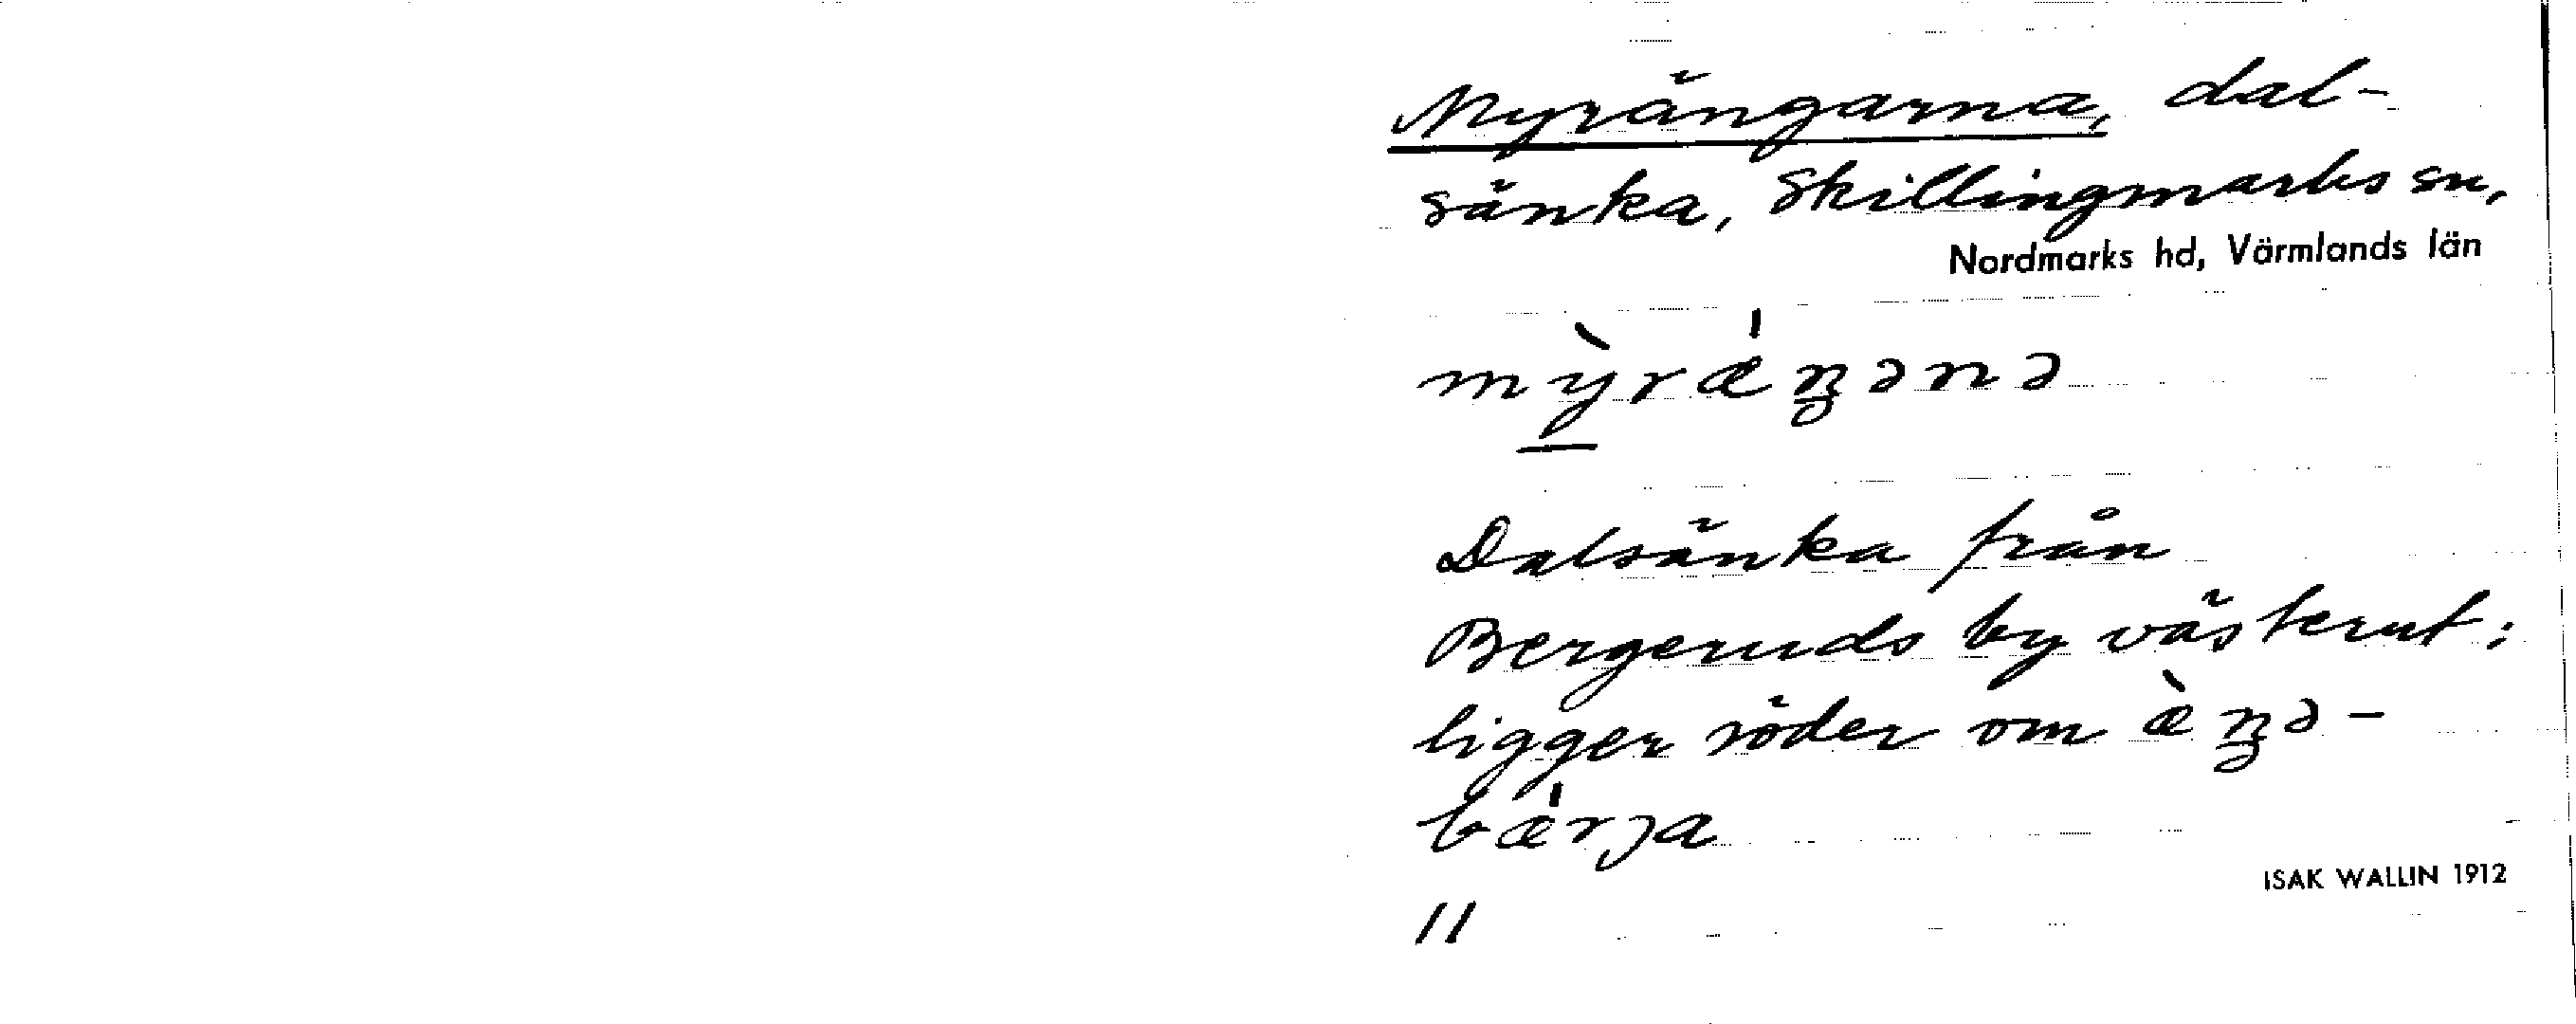 Myrängarna, dal-
sänka, Skillingmarks sn,
Nordmarks hd, Värmlands län
mỳræ̍ŋənə
Dalsänka från
Bergeruds by västerut;
ligger söder om æ̀ŋə-
bæ̍rja
ISAK WALLIN 1912
11